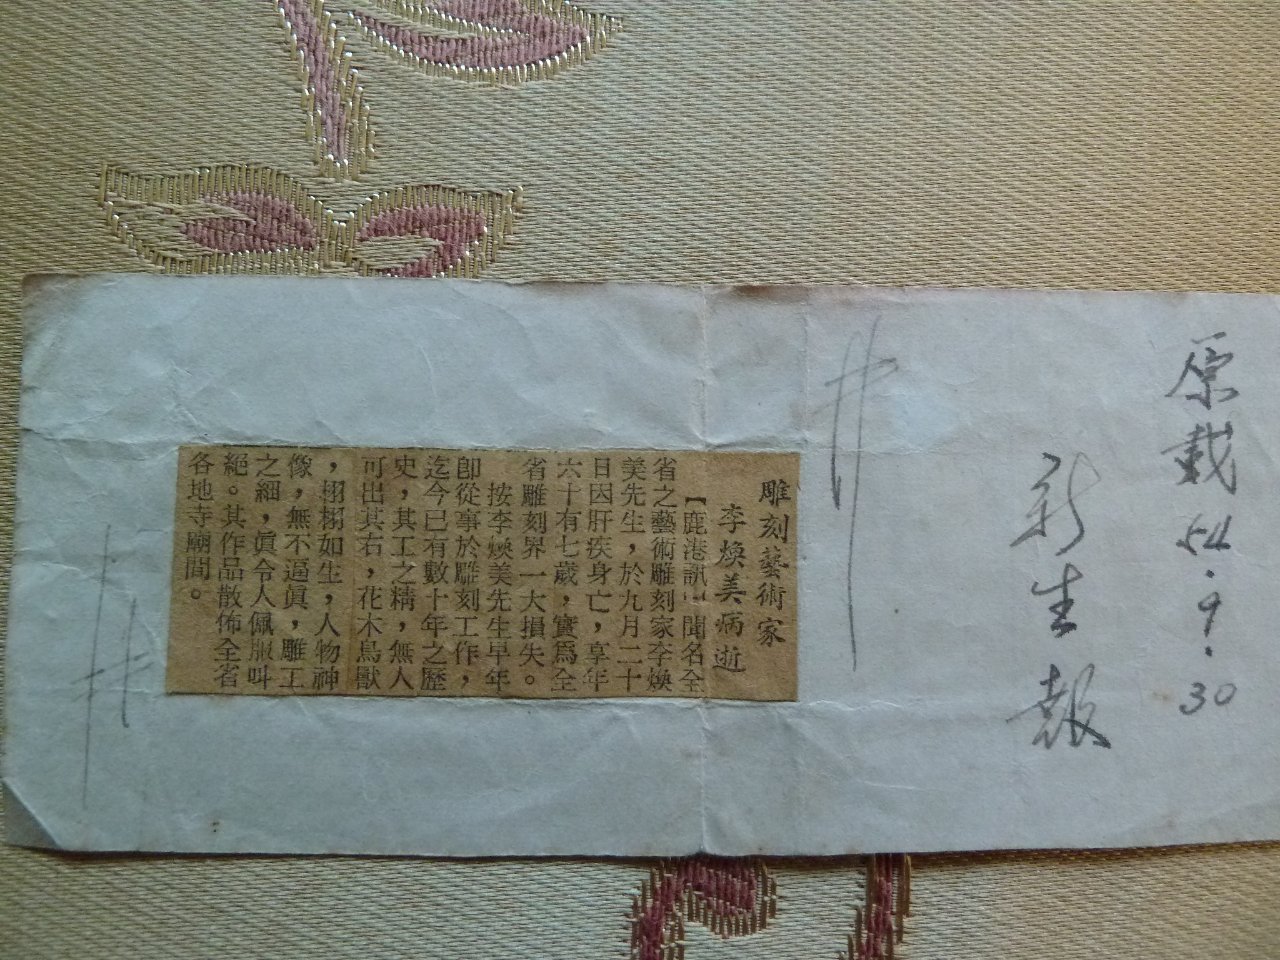 原載 54.9.30
新生報
雕刻藝術家
李煥美病逝
【鹿港訊】聞名全
省之藝術雕刻家李煥
美先生，於九月二十
日因肝疾身亡，享年
六十有七歲，實爲全
省雕刻界一大損失。
按李煥美先生早年
卽從事於雕刻工作，
迄今已有數十年之歷
史，其工之精，無人
可出其右，花木鳥獸
，栩栩如生，人物神
像，無不逼眞，雕工
之細，眞令人佩服叫
絕。其作品散佈全省
各地寺廟間。